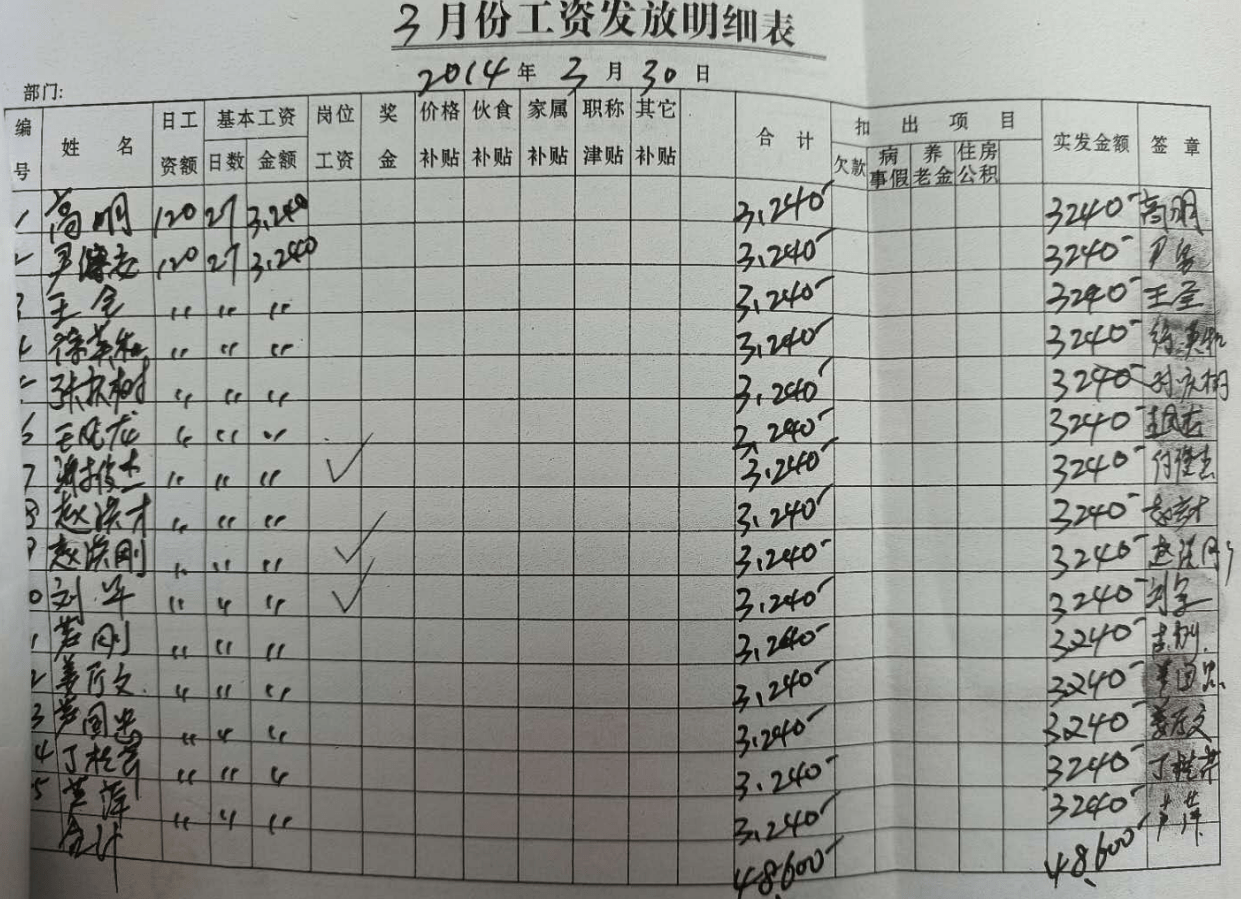 3月份工资发放明细表
2014年3月30日
部门:
编号 姓名 日工资额 基本工资 日数 金额 岗位工资 奖金 价格补贴 伙食补贴 家属补贴 职称津贴 其它补贴 合计 扣出项目 欠款 病事假 养老金 住房公积 实发金额 签章
1 高明 120 27 3,240 3,240- 3240- 高明
2 尹 120 27 3,240 3,240- 3240- 尹
3 王全 〃 〃 〃 3,240- 3240- 王全
4 徐英和 〃 〃 〃 3,240- 3240- 徐英和
5 张庆树 〃 〃 〃 3,240- 3240- 庆树
6 王凤龙 〃 〃 〃 3,240- 3240- 王凤龙
7 俊杰 〃 〃 〃 ✓ 3,240- 3240- 付俊杰
8 赵洪才 〃 〃 〃 3,240- 3240- 赵才
9 赵洪刚 〃 〃 〃 ✓ 3,240- 3240- 赵洪刚
0 刘军 〃 〃 〃 ✓ 3,240- 3240- 刘军
1 刚 〃 〃 〃 3,240- 3240- 刚
2 姜厅文 〃 〃 〃 3,240- 3240- 国忠
3 国忠 〃 〃 〃 3,240- 3240- 姜厅文
4 丁桂芹 〃 〃 〃 3,240- 3240- 丁桂芹
5 萍 〃 〃 〃 3,240- 3240- 萍
合计 48,600- 48,600-